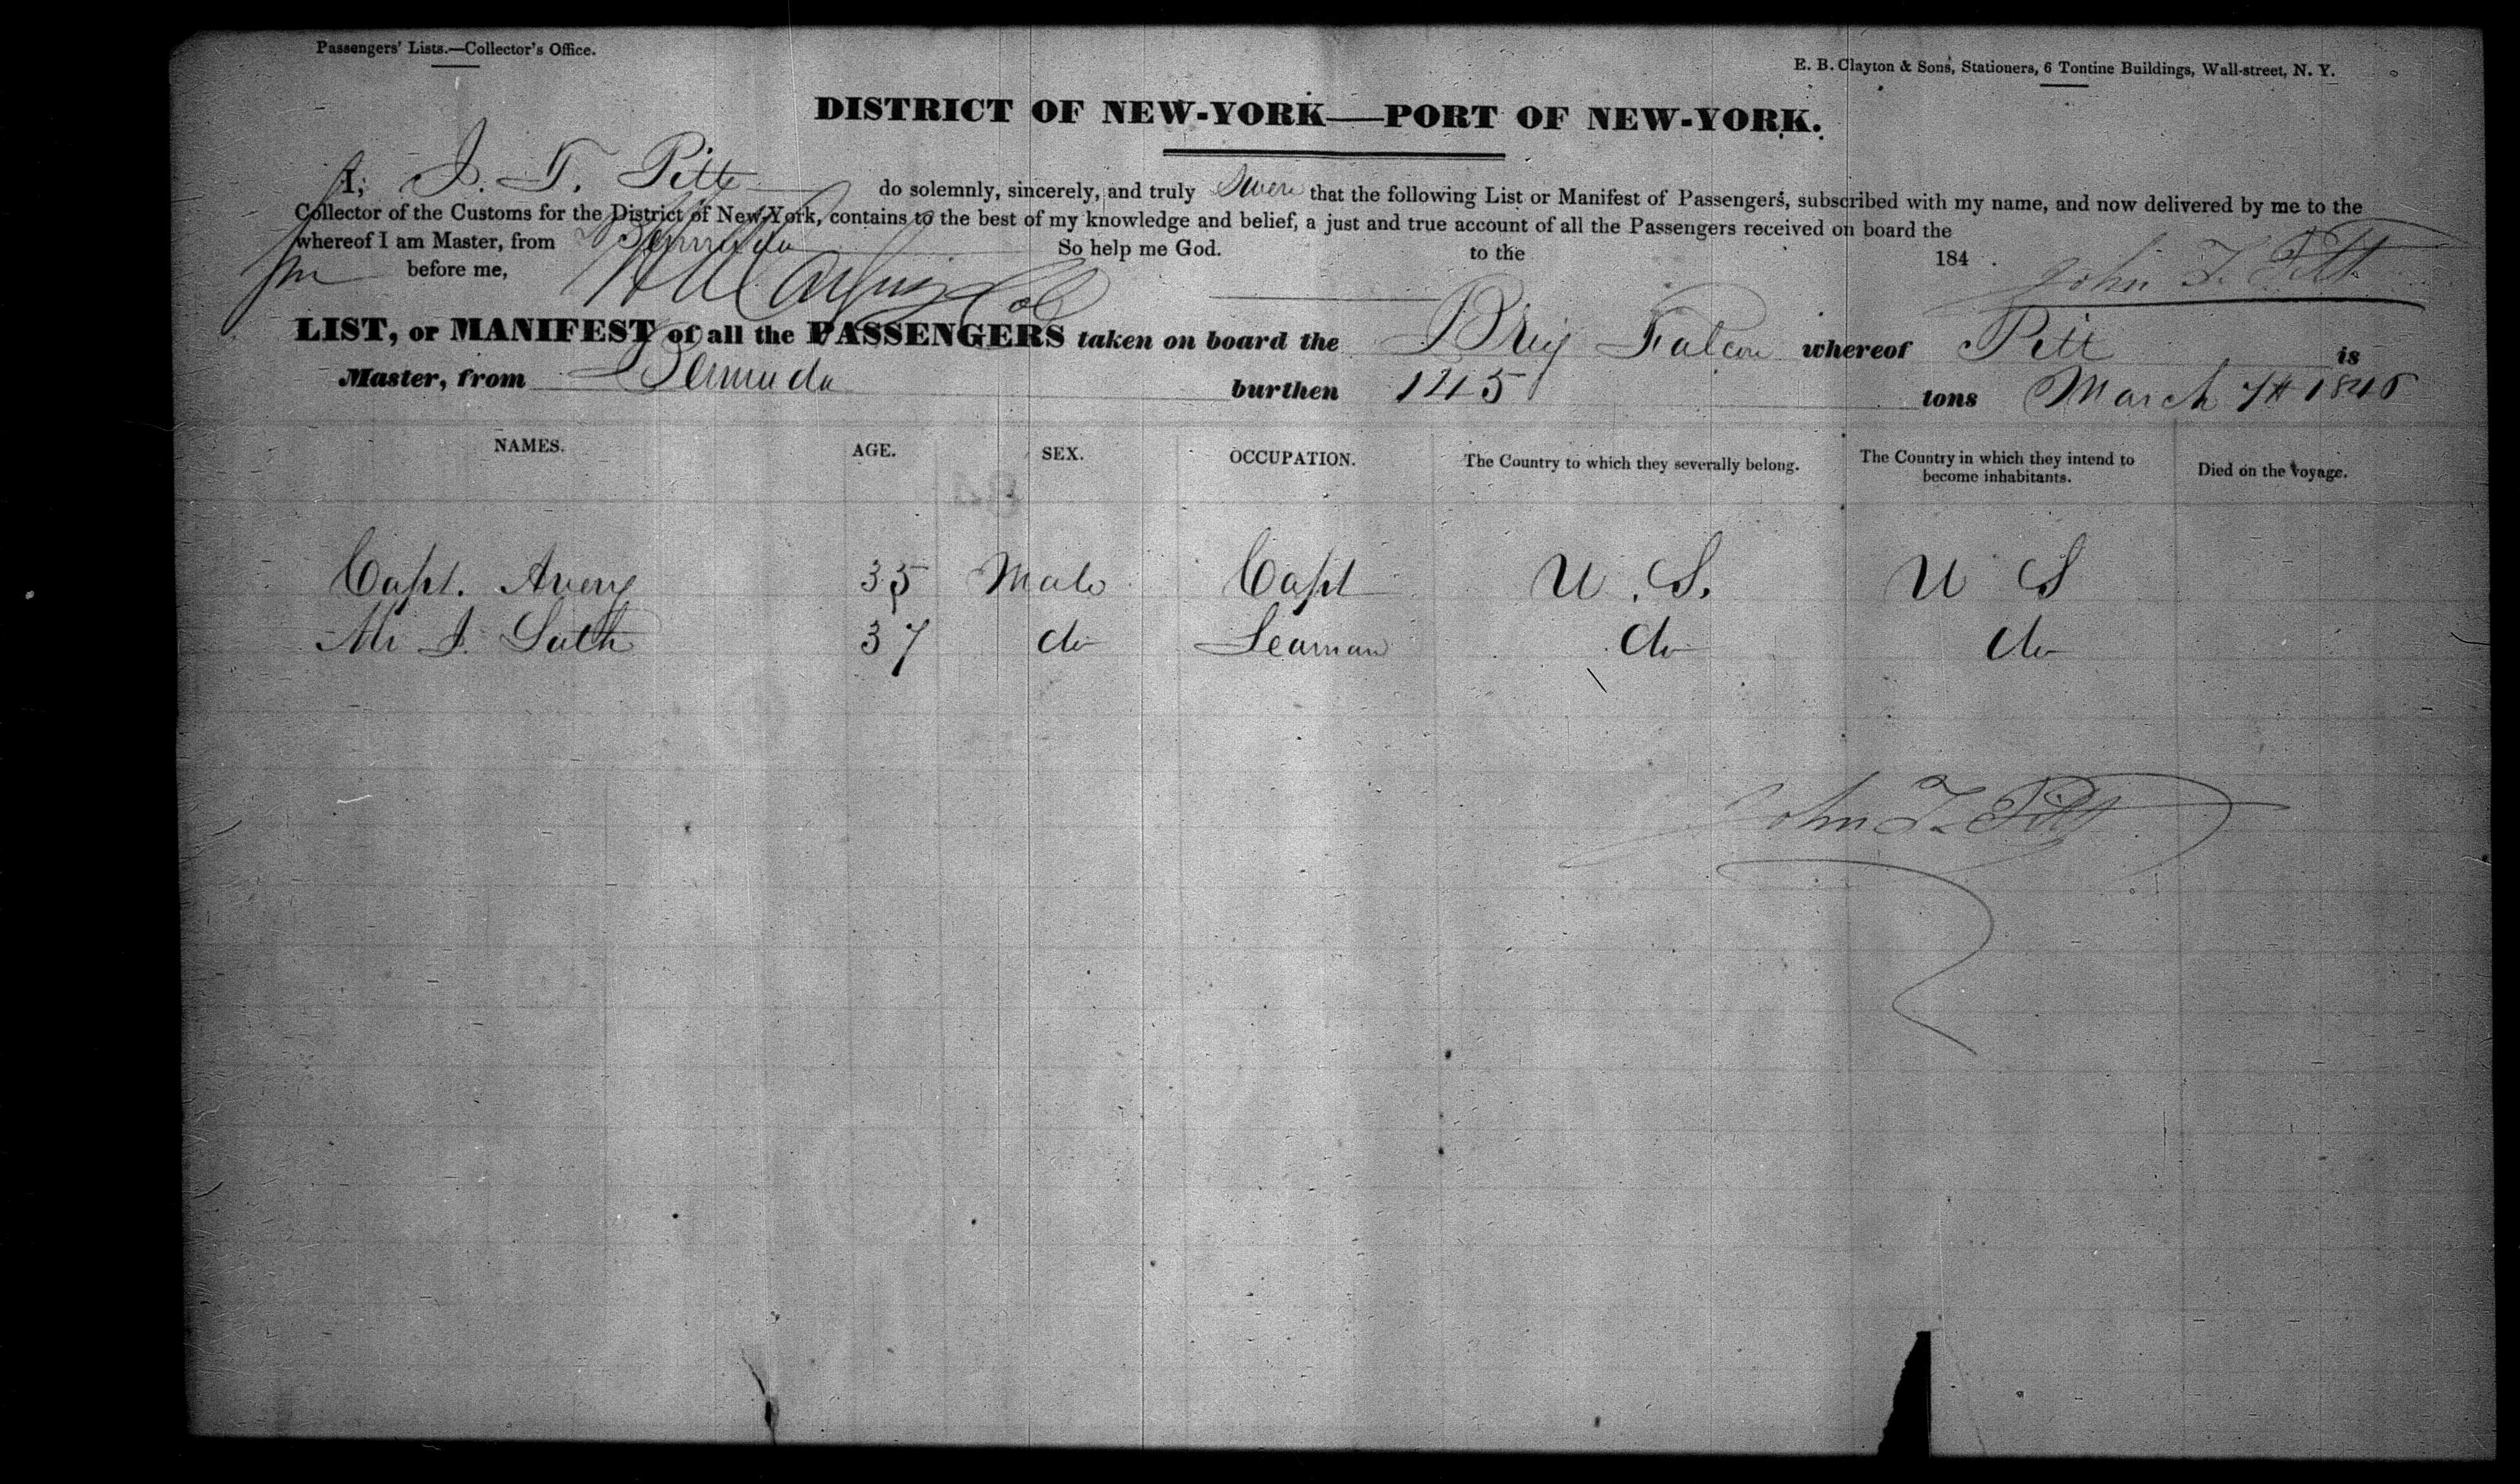 Passengers' Lists.—Collector's Office.
E. B. Clayton & Sons, Stationers, 6 Tontine Buildings, Wall-street, N. Y.
DISTRICT OF NEW-YORK—PORT OF NEW-YORK.
I, J. T. Pitt do solemnly, sincerely, and truly swear that the following List or Manifest of Passengers, subscribed with my name, and now delivered by me to the
Collector of the Customs for the District of New-York, contains to the best of my knowledge and belief, a just and true account of all the Passengers received on board the
whereof I am Master, from Bermuda So help me God.
to the 184 . John T. Pitt
before me,
LIST, or MANIFEST of all the PASSENGERS taken on board the Brig Falcon whereof Pitt is
Master, from Bermuda burthen 145 tons March 7th 1846
NAMES. AGE. SEX. OCCUPATION. The Country to which they severally belong. The Country in which they intend to become inhabitants. Died on the voyage.
Capt. Avery 35 Male Capt U. S. U S
Mr J. 37 do Seaman do do
John T. Pitt